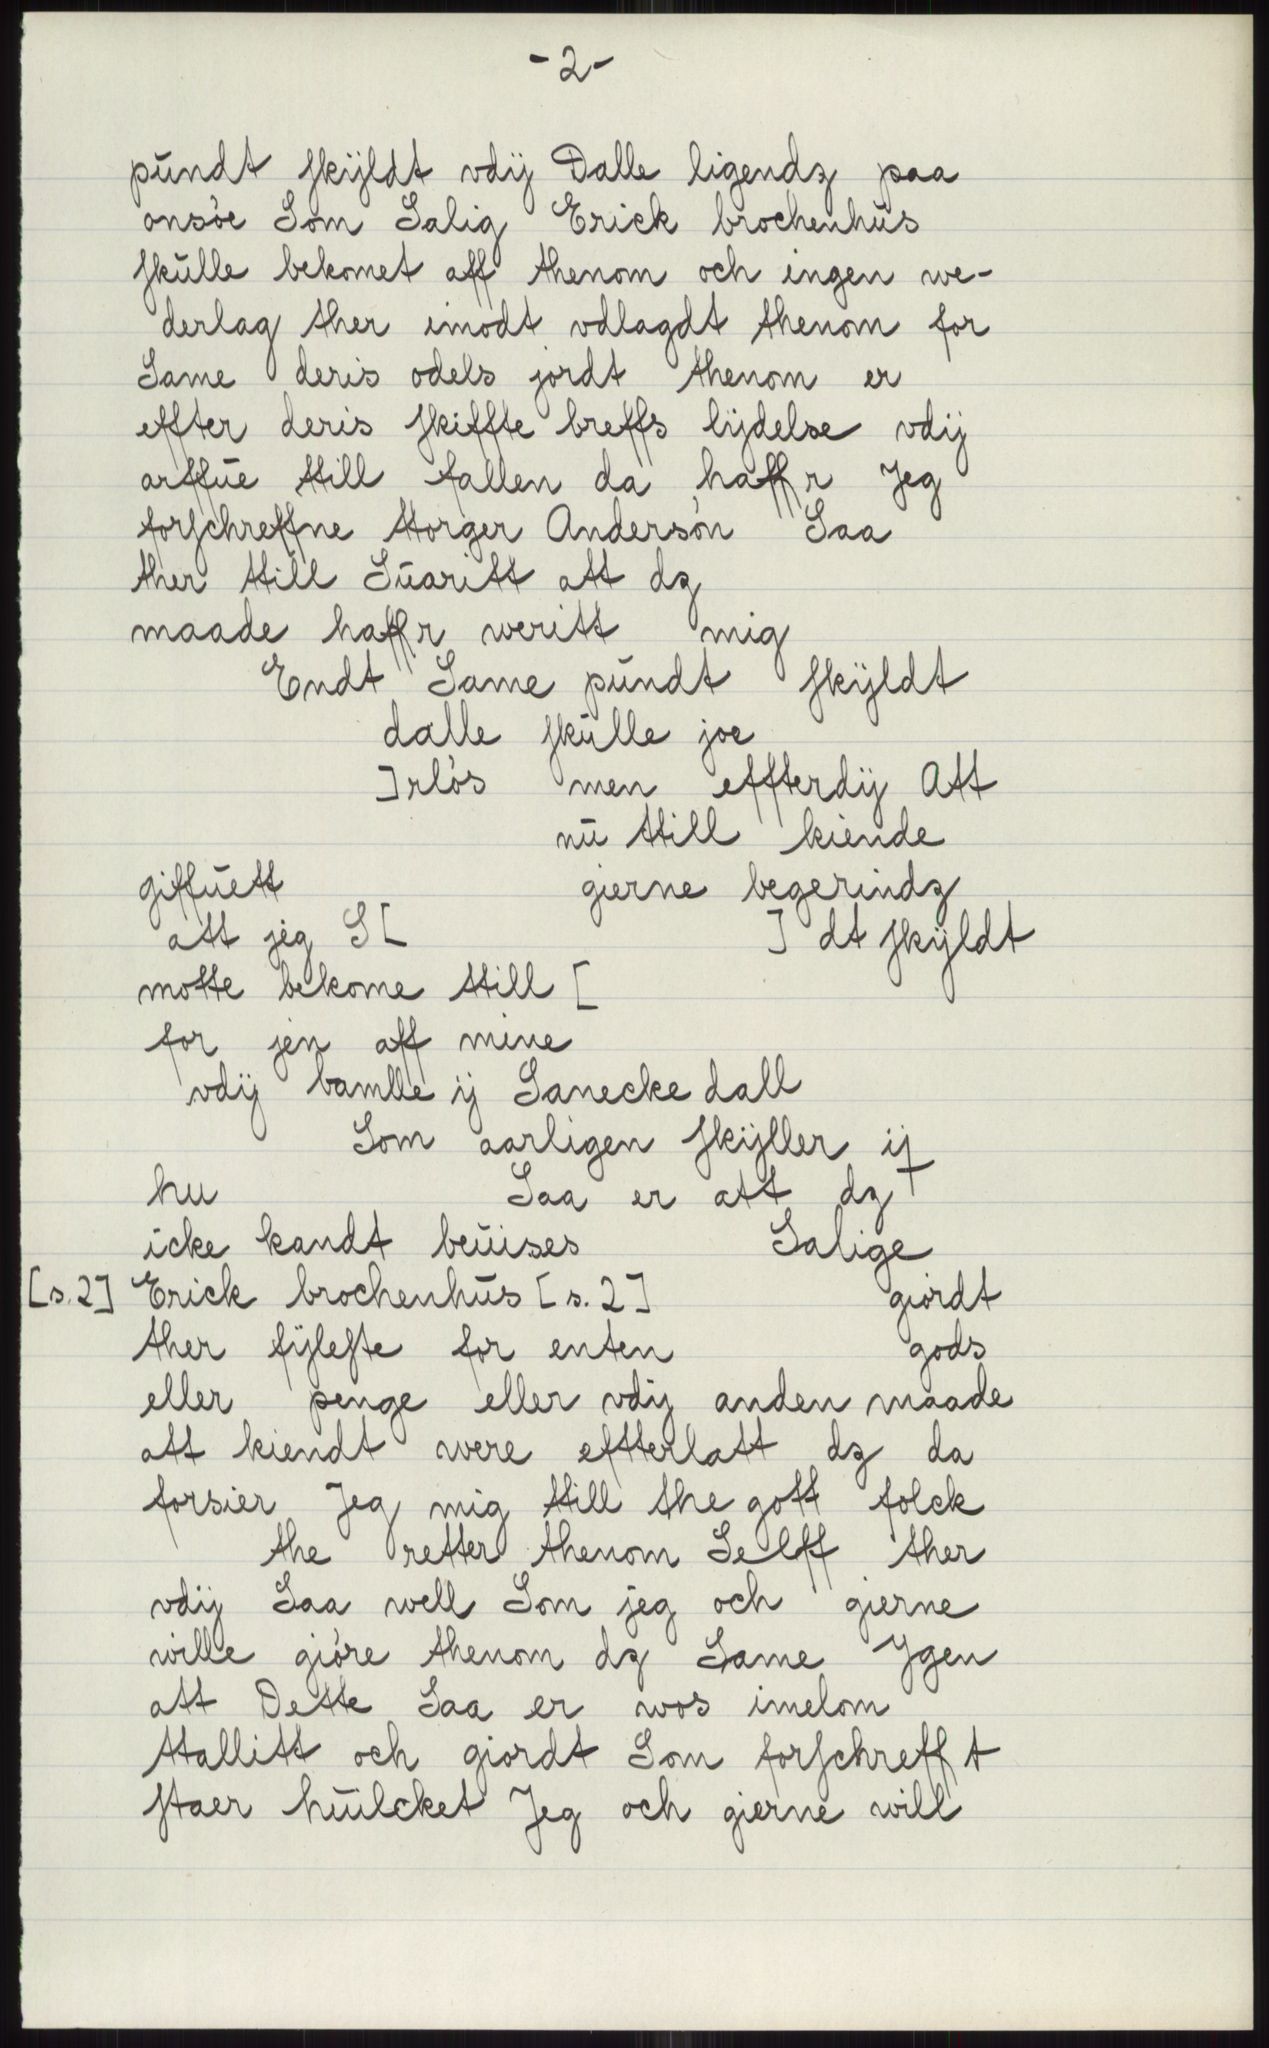 -2-
pŭndt skÿldt vdÿ Dalle ligendz paa
onsöe Som Salig Erick brochenhŭs
skŭlle bekomet aff thenom och ingen we-
derlag ther imodt vdlagdt thenom for
Same deris odels jordt thenom er
effter deris skiffte breffs lÿdelse vdÿ
arffŭe till fallen da haffr Jeg
forschreffne Torger Andersön Saa
ther till Sŭaritt att dz
maade haffr weritt mig
Endt Same pŭndt skÿldt
dalle skŭlle joe
]rlös men effterdÿ Att
nŭ till kiende
giffŭett gierne begerindz
att jeg S[ ] dt skÿldt
motte bekome till [
for jen aff mine
vdÿ bamlle ÿ Sanecke dall
Som aarligen skÿller ÿ
hu Saa er att dz
icke kandt beŭises Salige
[s.2] Erick brochenhŭs [s.2] giordt
ther fÿleste for enten gods
eller penge eller vdÿ anden maade
att kiendt were eftterlatt dz da
forsier Jeg mig till the gott folck
the retter thenom Selff ther
vdÿ Saa well Som jeg och gierne
wille giöre thenom dz Same Jgen
att Dette Saa er wos imelom
tallitt och giordt Som forschrefft
staer hŭilcket Jeg och gierne will